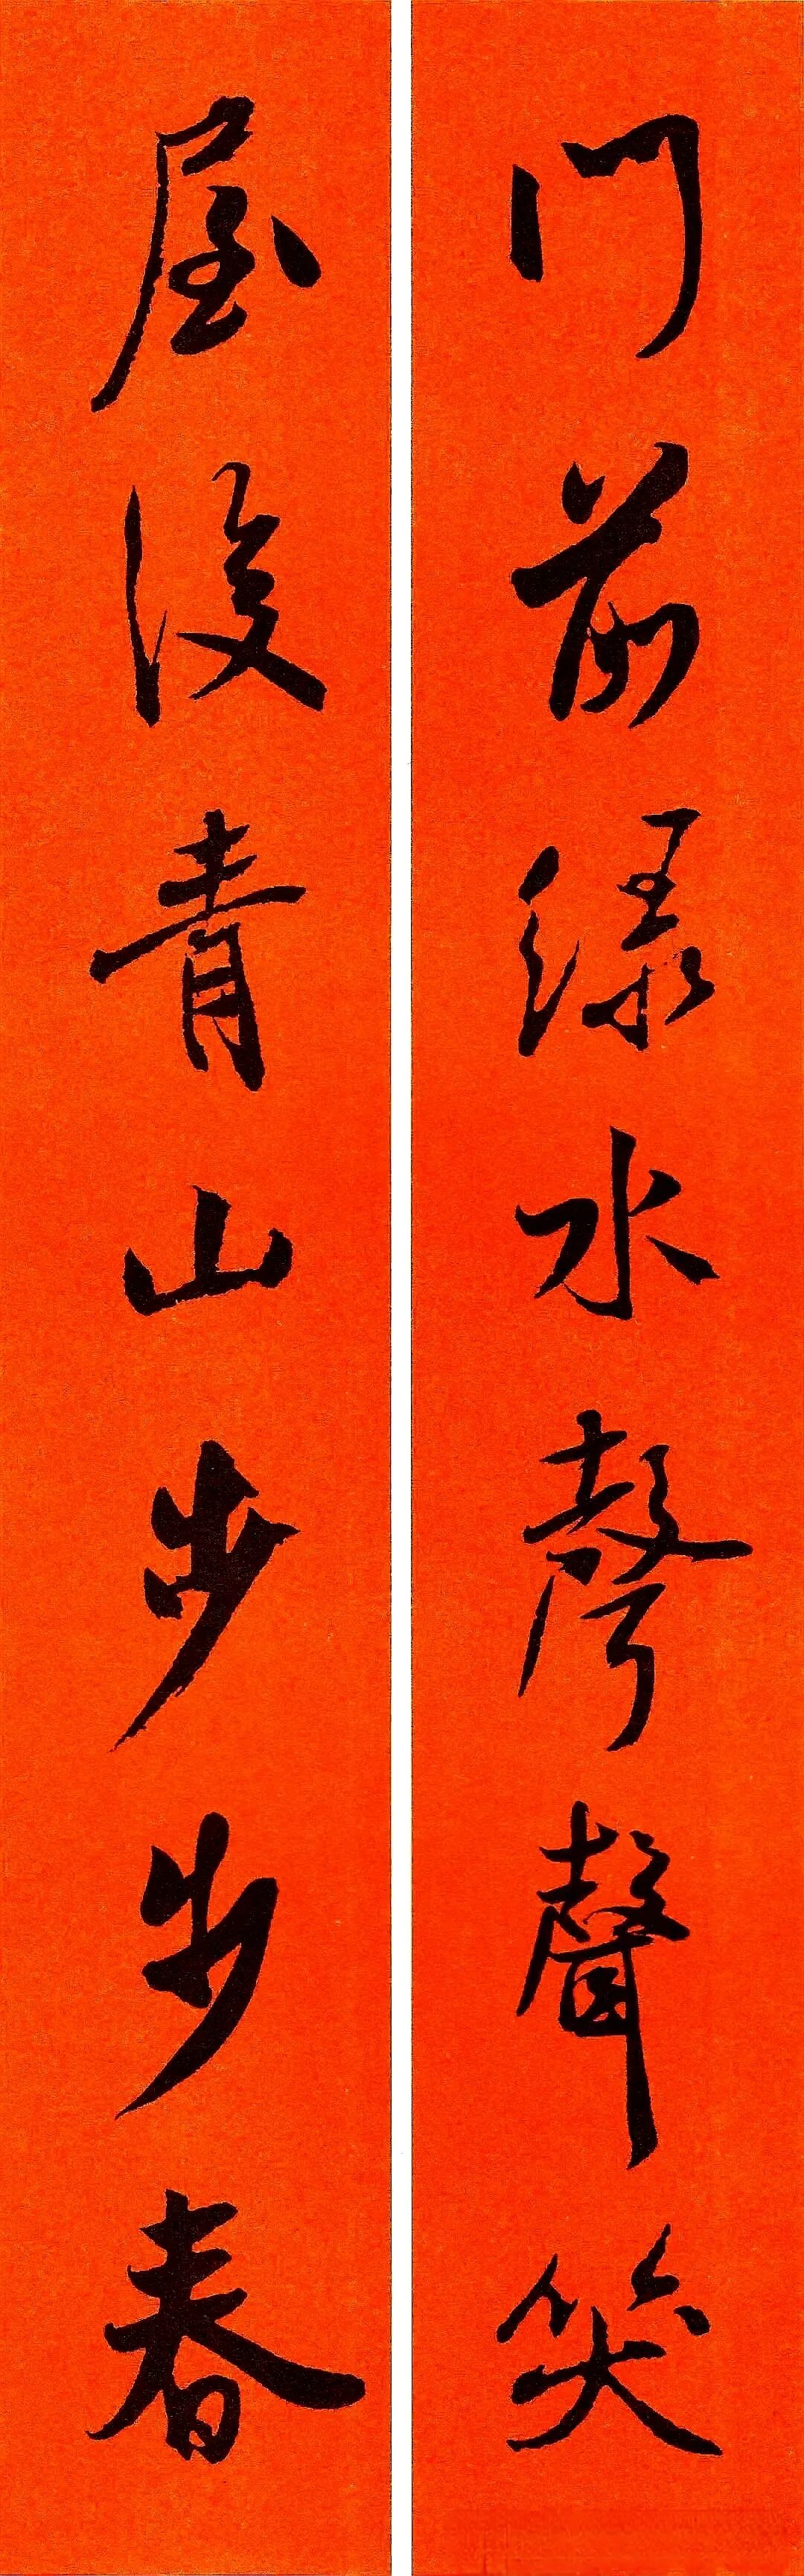 門前緑水聲聲笑
屋後青山步步春